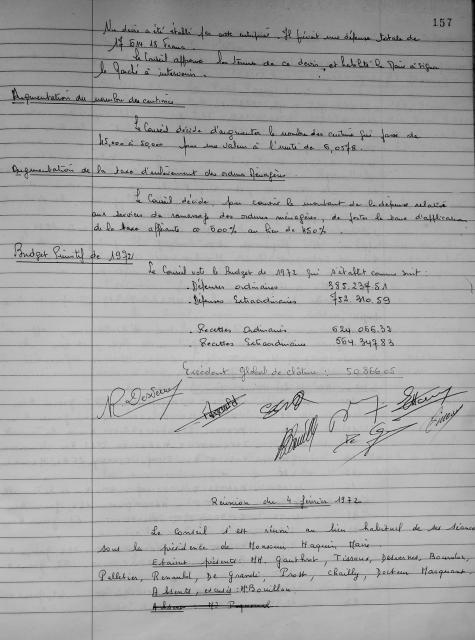 157
Un devis a été établi par cette entreprise. Il prévoit une dépense totale de
17 614 15 Francs.
Le Conseil approuve les termes de ce devis, et habilite le Maire à signer
le Marché à intervenir.
Augmentation du nombre des centimes
Le Conseil décide d'augmenter le nombre des centimes qui passe de
45,000 à 50,000 pour une valeur à l'unité de 6,0578.
Augmentation de la taxe d'enlèvement des ordures Ménagères
Le Conseil décide, pour couvrir le montant de la dépense relative
aux services de ramassage des ordures ménagères, de porter le taux d'application
de la taxe afférente à 500% au lieu de 450%.
Budget Primitif de 1972
Le Conseil vote le Budget de 1972 qui s'établit comme suit :
. Dépenses ordinaires 385.237.51
. Dépenses Extraordinaires 752.310.59
. Recettes Ordinaires 624.066.33
. Recettes Extraordinaires 564.347.83
Excédent global de clôture : 50.866.05
Réunion du 4 février 1972
Le Conseil s'est réuni au lieu habituel de ses séances
sous la présidence de Monsieur Haquin, Maire
Etaient présents : MM. Gauthrot, Tisserand, Desvernes, Bourdon,
Pelletier, Renauld, De Grandi, Prost, Chailly, Docteur Marquant.
Absents, excusés : M. Bouillon
Absent : M.